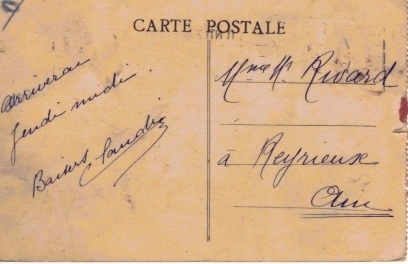 CARTE POSTALE
Arriverai
jeudi midi.
Baisers Claudia
Mme Mt Rivard
à Reyrieux
Ain